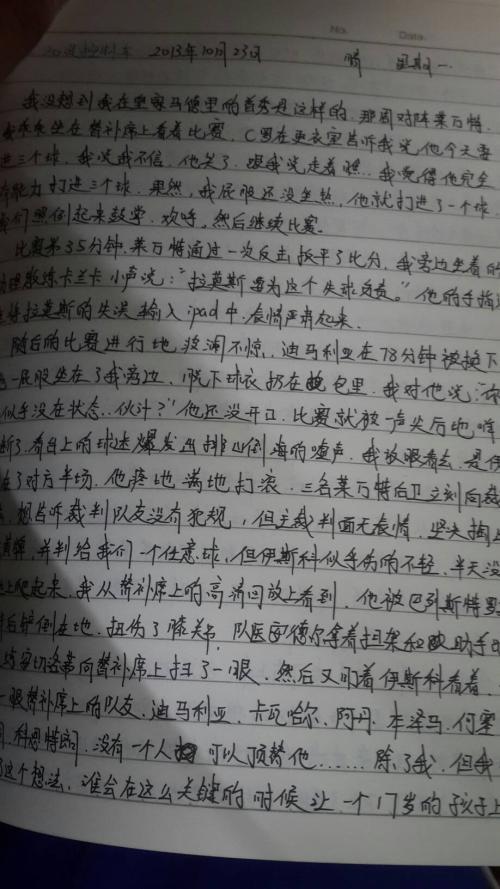 No. Date.
2013年10月23日 晴 星期一.
我没想到我在皇家马德里的首秀是这样的.那周对阵莱万特.
我乖乖坐在替补席上看着比赛,C罗在更衣室告诉我说他今天要
进三个球.我说我不信.他笑了.跟我说走着瞧..我觉得他完全
有能力打进三个球.果然,我屁股还没坐热,他就打进了一个球.
我们照例起来鼓掌.欢呼.然后继续比赛.
比赛第35分钟.莱万特通过一次反击扳平了比分.我旁边坐着的
助理教练卡兰卡小声说:"拉莫斯要为这个失球负责."他的手指
将拉莫斯的失误输入ipad中.表情严肃起来.
随后的比赛进行地波澜不惊.迪马利亚在78分钟被换下
一屁股坐在了我旁边,脱下球衣扔在包里.我对他说:"你
似乎没在状态..伙计?"他还没开口.比赛就被一声尖厉地哨
断了.看台上的球迷爆发出排山倒海的嘘声.我放眼看去.是伊
在了对方半场.他疼地满地打滚.三名莱万特后卫立刻向裁
想告诉裁判队友没有犯规,但主裁判面无表情.坚决掏
黄牌,并判给我们一个任意球,但伊斯科似乎伤的不轻.半天没
上爬起来.我从替补席上的高清回放上看到.他被巴列斯特罗
背后铲倒在地.扭伤了膝关节.队医 拿着担架和 助手
练 切洛蒂向替补席上扫了一眼.然后又盯着伊斯科看着
一眼替补席上的队友.迪马利亚.卡瓦哈尔.阿丹.本泽马.何塞
科恩特朗.没有一个人 可以顶替他......除了我.但我
了这个想法.谁会在这么关键的时候让一个17岁的孩子上